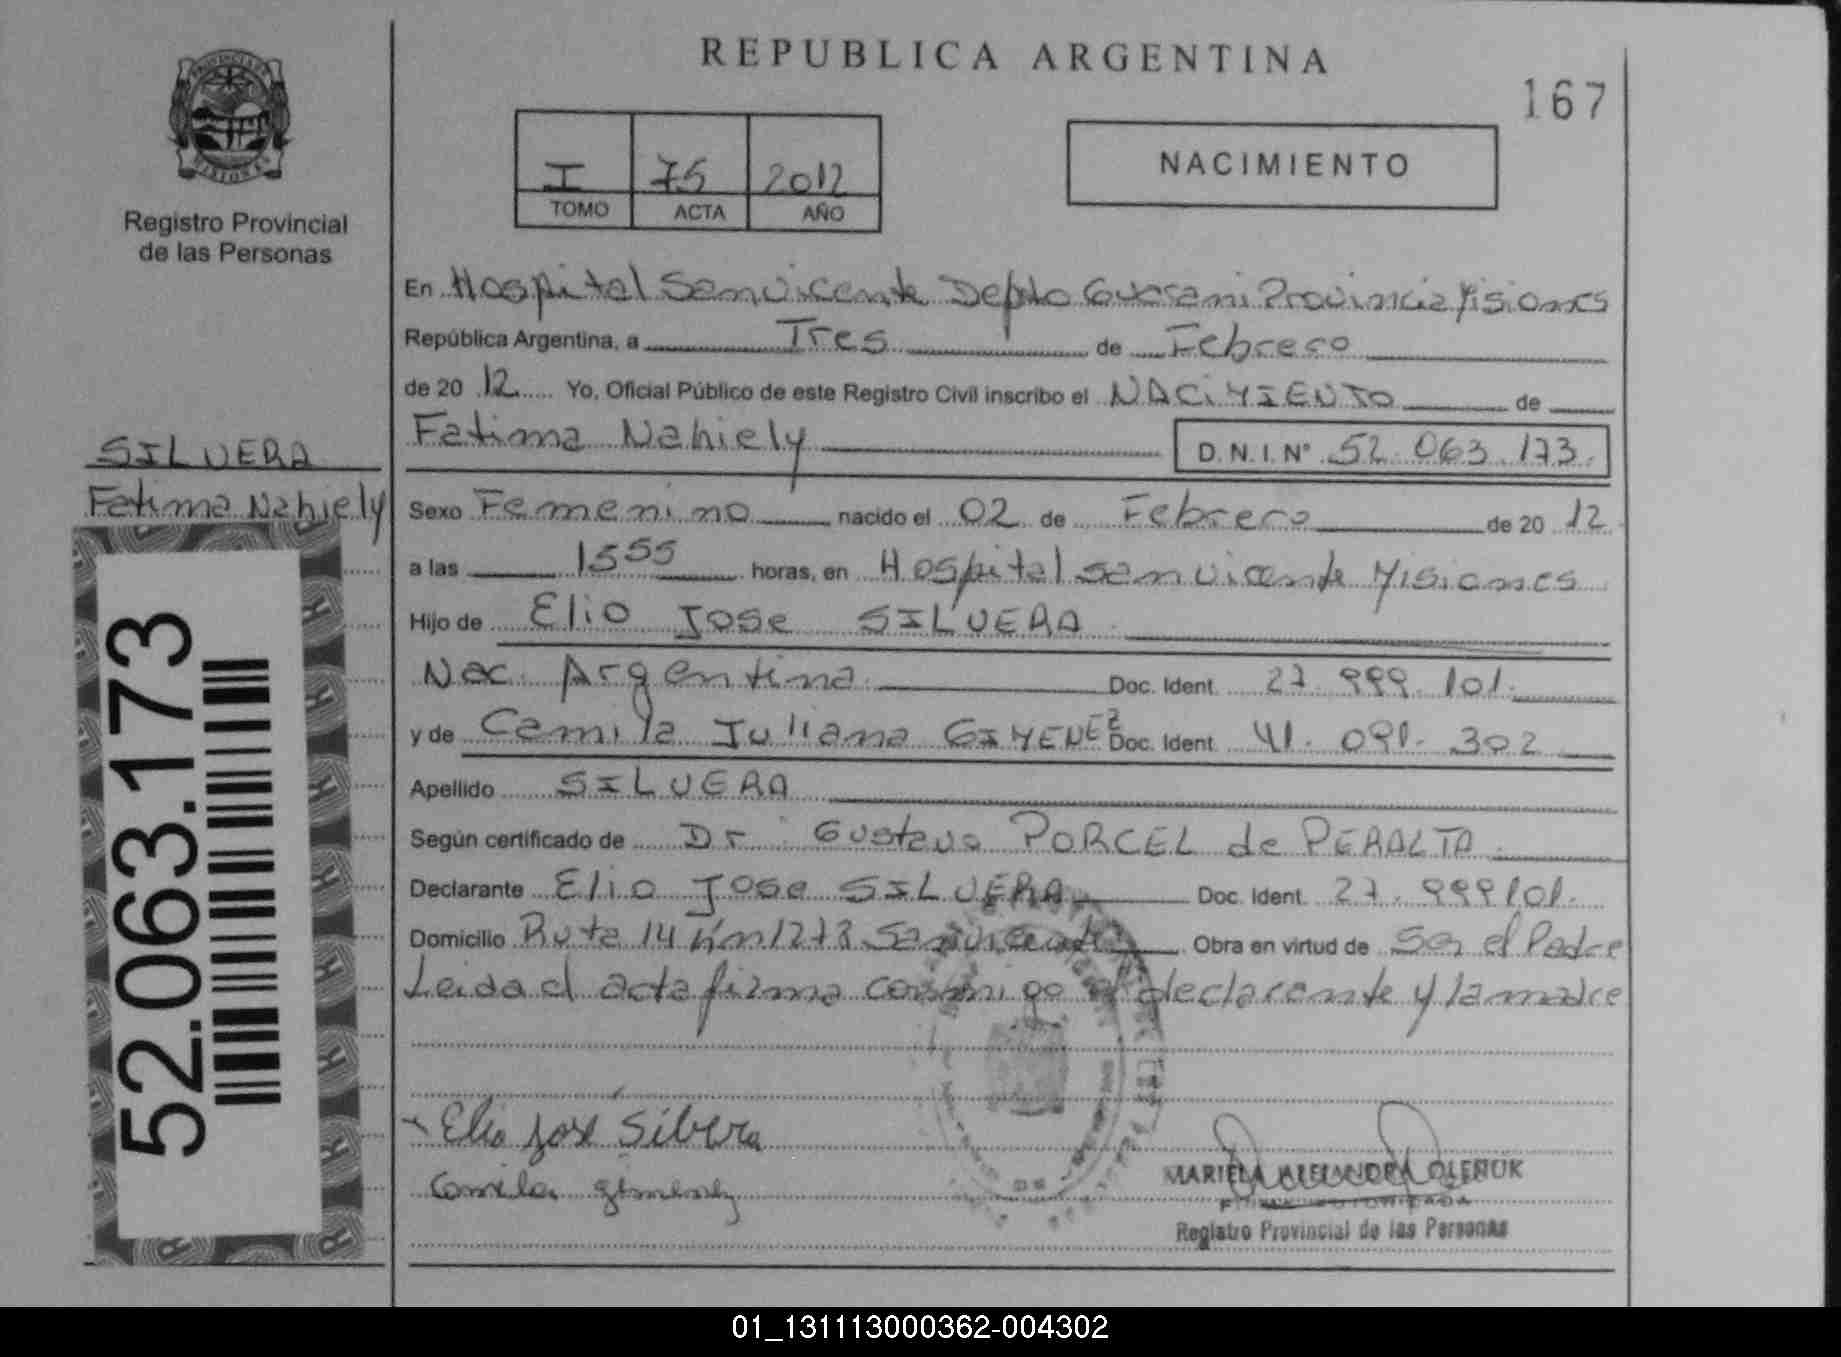 REPUBLICA ARGENTINA
167
PROVINCIA DE
MISIONES
Registro Provincial
de las Personas
I 75 2012
TOMO ACTA AÑO
NACIMIENTO
En Hospital San Vicente Depto Guarani Provincia Misiones
República Argentina, a Tres de Febrero
de 20 12 Yo, Oficial Público de este Registro Civil inscribo el NACIMIENTO de
Fatima Nahiely D.N.I. N° 52.063.173.
SILVERA
Fatima Nahiely
Sexo Femenino nacido el 02 de Febrero de 20 12
a las 15 55 horas, en Hospital San Vicente Misiones
Hijo de Elio Jose SILVERA
Nac. Argentina Doc. Ident. 27.999.101.
y de Camila Juliana GIMENEZ Doc. Ident. 41.091.302
Apellido SILVERA
Según certificado de Dr. Gustavo PORCEL de PERALTA
Declarante Elio Jose SILVERA Doc. Ident. 27.999101.
Domicilio Ruta 14 Km 1273 San Vicente Obra en virtud de Ser el Padre
Leida el acta firma conmigo el declarante y la madre
Elio José Silvera
Camila gimenez
MARIELA ALEJANDRA OLEÑUK
FIRMA AUTORIZADA
Registro Provincial de las Personas
52.063.173
01_131113000362-004302